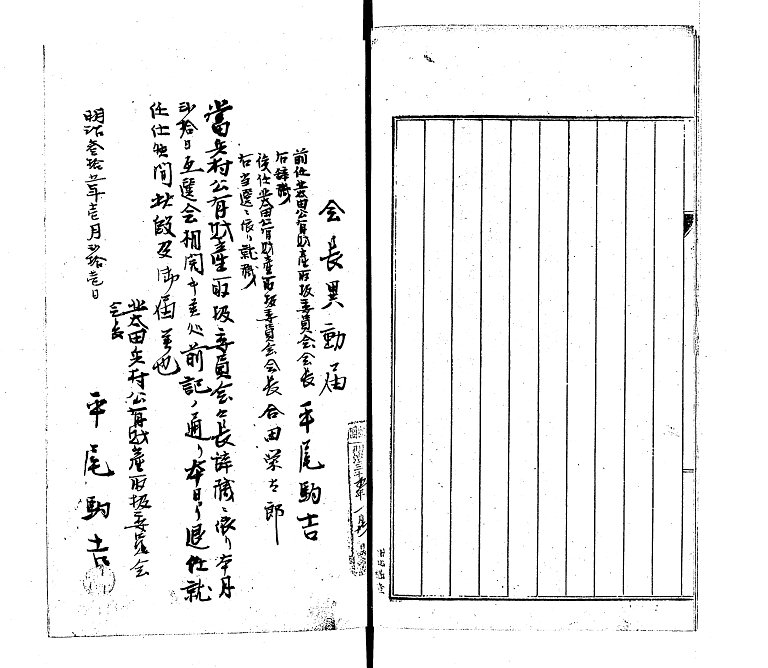 会長異動届
前任 太田公有財産取扱委員会会長 平尾駒吉
右辞職
後任 太田公有財産取扱委員会会長 合田栄太郎
右当選ニ依リ就職
當兵村公有財産取扱委員会々長辞職ニ依リ本月
弐拾日互選会相開申候処前記ノ通リ本日ヨリ退任就
任仕候間此段及御届候也
明治参拾五年壱月弐拾壱日
太田兵村公有財産取扱委員会
会長
平尾駒吉